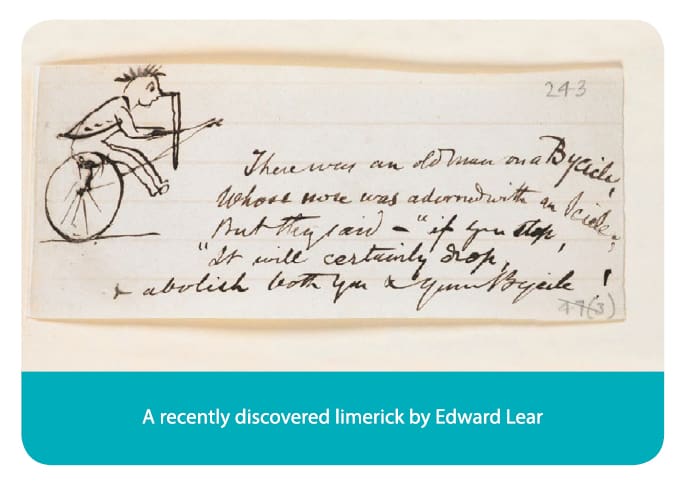 243
There was an old man on a Bycicle,
Whose nose was adorned with an Icicle;
But they said – "if you stop,
"It will certainly drop,
& abolish both you & your Bycicle!
47(3)
A recently discovered limerick by Edward Lear